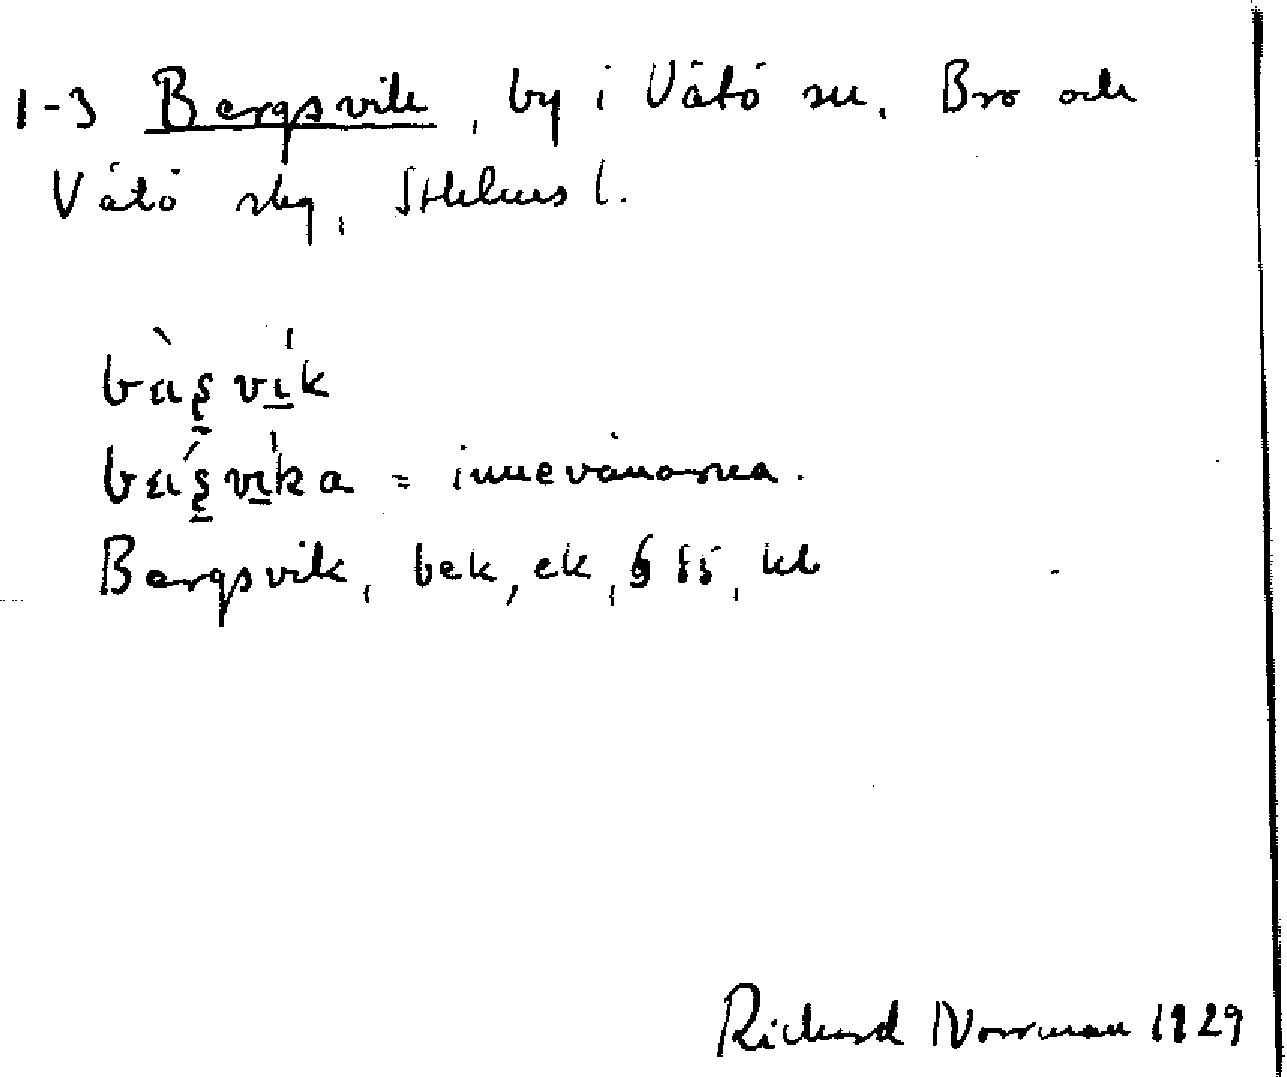 1-3 Bergsvik, by i Vätö sn. Bro och
Vätö skg, Sthlms l.
bàs̨vík
bás̨víka = innevånarna.
Bergsvik, bek, ek, § 85, kb
Richard Norrman 1929